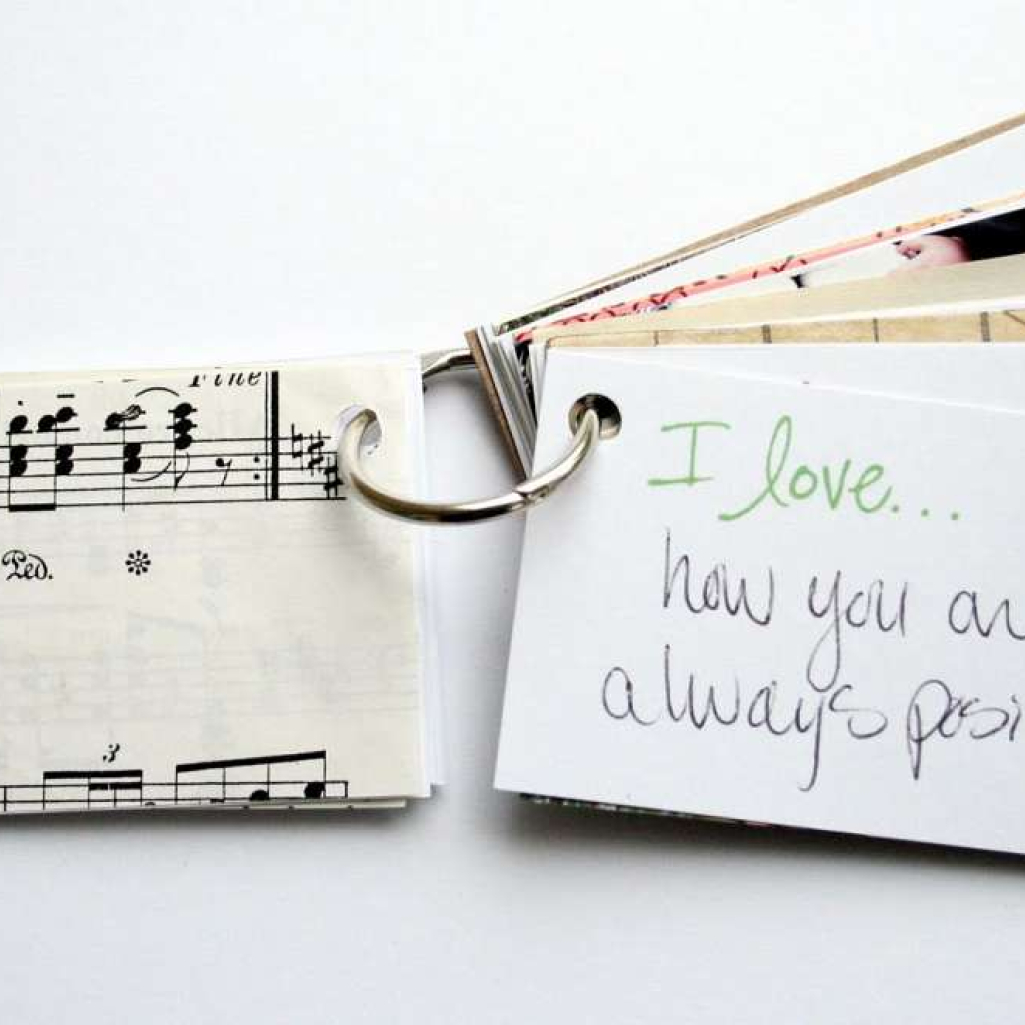 Fine
Ped.
3
I love...
how you ar
always posi